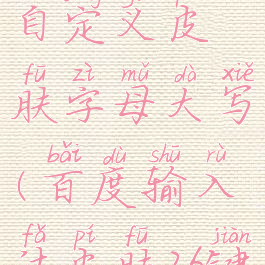 自定义皮
fū zì mǔ dà xiě
肤字母大写
bǎi dù shū rù
(百度输入
fǎ pí fū jiàn
法皮肤26键